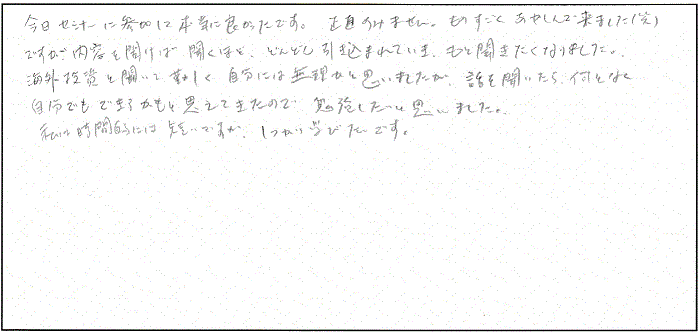 今日セミナーに参加して本当に良かったです。正直すみません。ものすごくあやしんで来ました(笑)
ですが内容を聞けば聞くほど、どんどん引き込まれていき、もっと聞きたくなりました。
海外投資と聞いて難しく自分には無理かと思いましたが、話を聞いたら、何となく
自分でもできるかもと思えてきたので勉強したいと思いました。
私は時間的には短いですが、しっかり学びたいです。